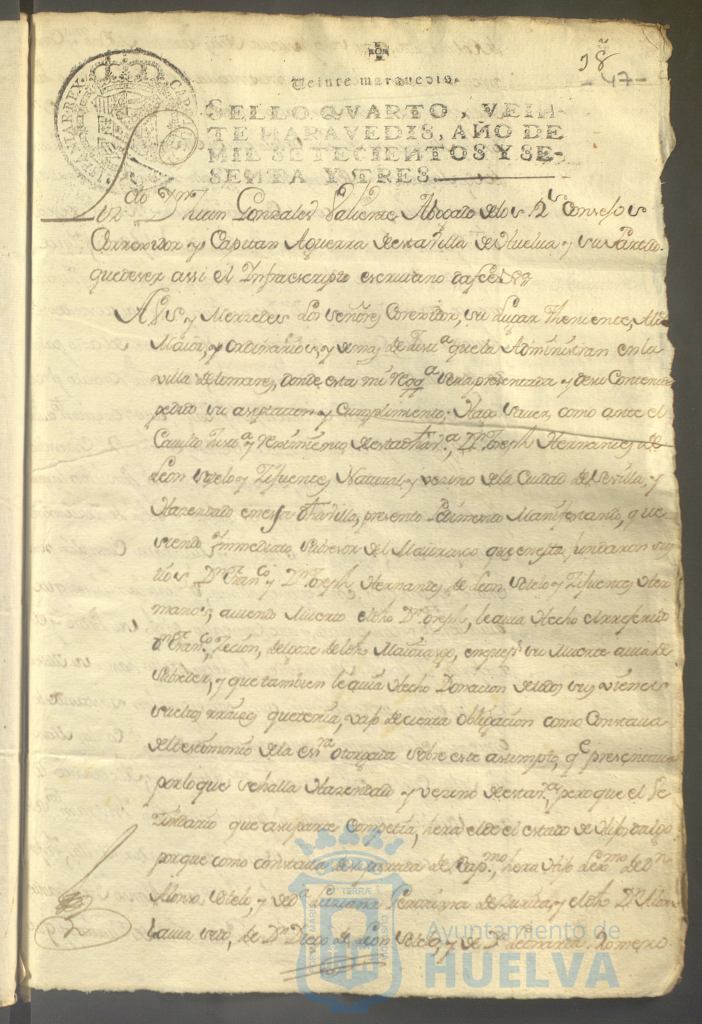 38
47
Veinte maravedis.
SELLO QVARTO, VEIN-
TE MARAVEDIS, AÑO DE
MIL SETECIENTOS Y SE-
SENTA Y TRES.
HISPANIAR. REX CAR
Dn. Juan Gonzales Valiente Abogado de los Rs. Consejos
Corregidor y Capitan Aguerra desta villa de Huelva y su Partido
que de ser assi el Infraescripto escribano da fee
A V.s y Mercedes Los señores Corregidor, su Lugar Theniente, Alcde
Maior, y Ordinarios, y demas de Justa. que la Administran en la
villa de tomares, donde esta mi Reqq.a sera presentada y de su Contenido
pedido su aseptacion y Cumplimiento, Hago saver, como ante el
Cavildo Justa. y Reximiento desta dha va., Dn. Joseph Hernandes de
Leon Sotelo y Zifuentes Natural y vezino de la Ciudad de Sevilla, y
Hazendado en esta dha villa, presento Pedimento Manifestando, que
siendo Immediato Subcesor del Maiorasgo que en esta fundaron sus
tios Dn. Franco. y Dn. Joseph Hernandes de Leon, Sotelo y Zifuentes Her
manos; aviendo Muerto el dho Dn. Joseph, le avia Hecho el referido
Dn. Franco. Zecion, del goze de dho Maiorasgo, en que pr. su Muerte avia de
Subceder, y que tambien le avia Hecho Donacion de todos sus vienes
sueltos y raizes que tenia, vajo de cierta Obligacion como Constava
del testimonio de la esra. otorgada sobre este asumpto, qe. presentava
por lo que se halla Hazendado y vezino de esta va. pero que el Ve
zindario que a su parte Competia, hera el de el estado de Hijosdalgo
porque como constava de su partida de Bapmo. hera Hijo Lexmo. de Dn.
Alonso Sotelo, y de Da. Luziana de Zurita, y el dho Dn. Alon
so avia sido, de Dn. Diego de Leon Sotelo, y de Da. Leonarda Romero
Ayuntamiento de
HUELVA